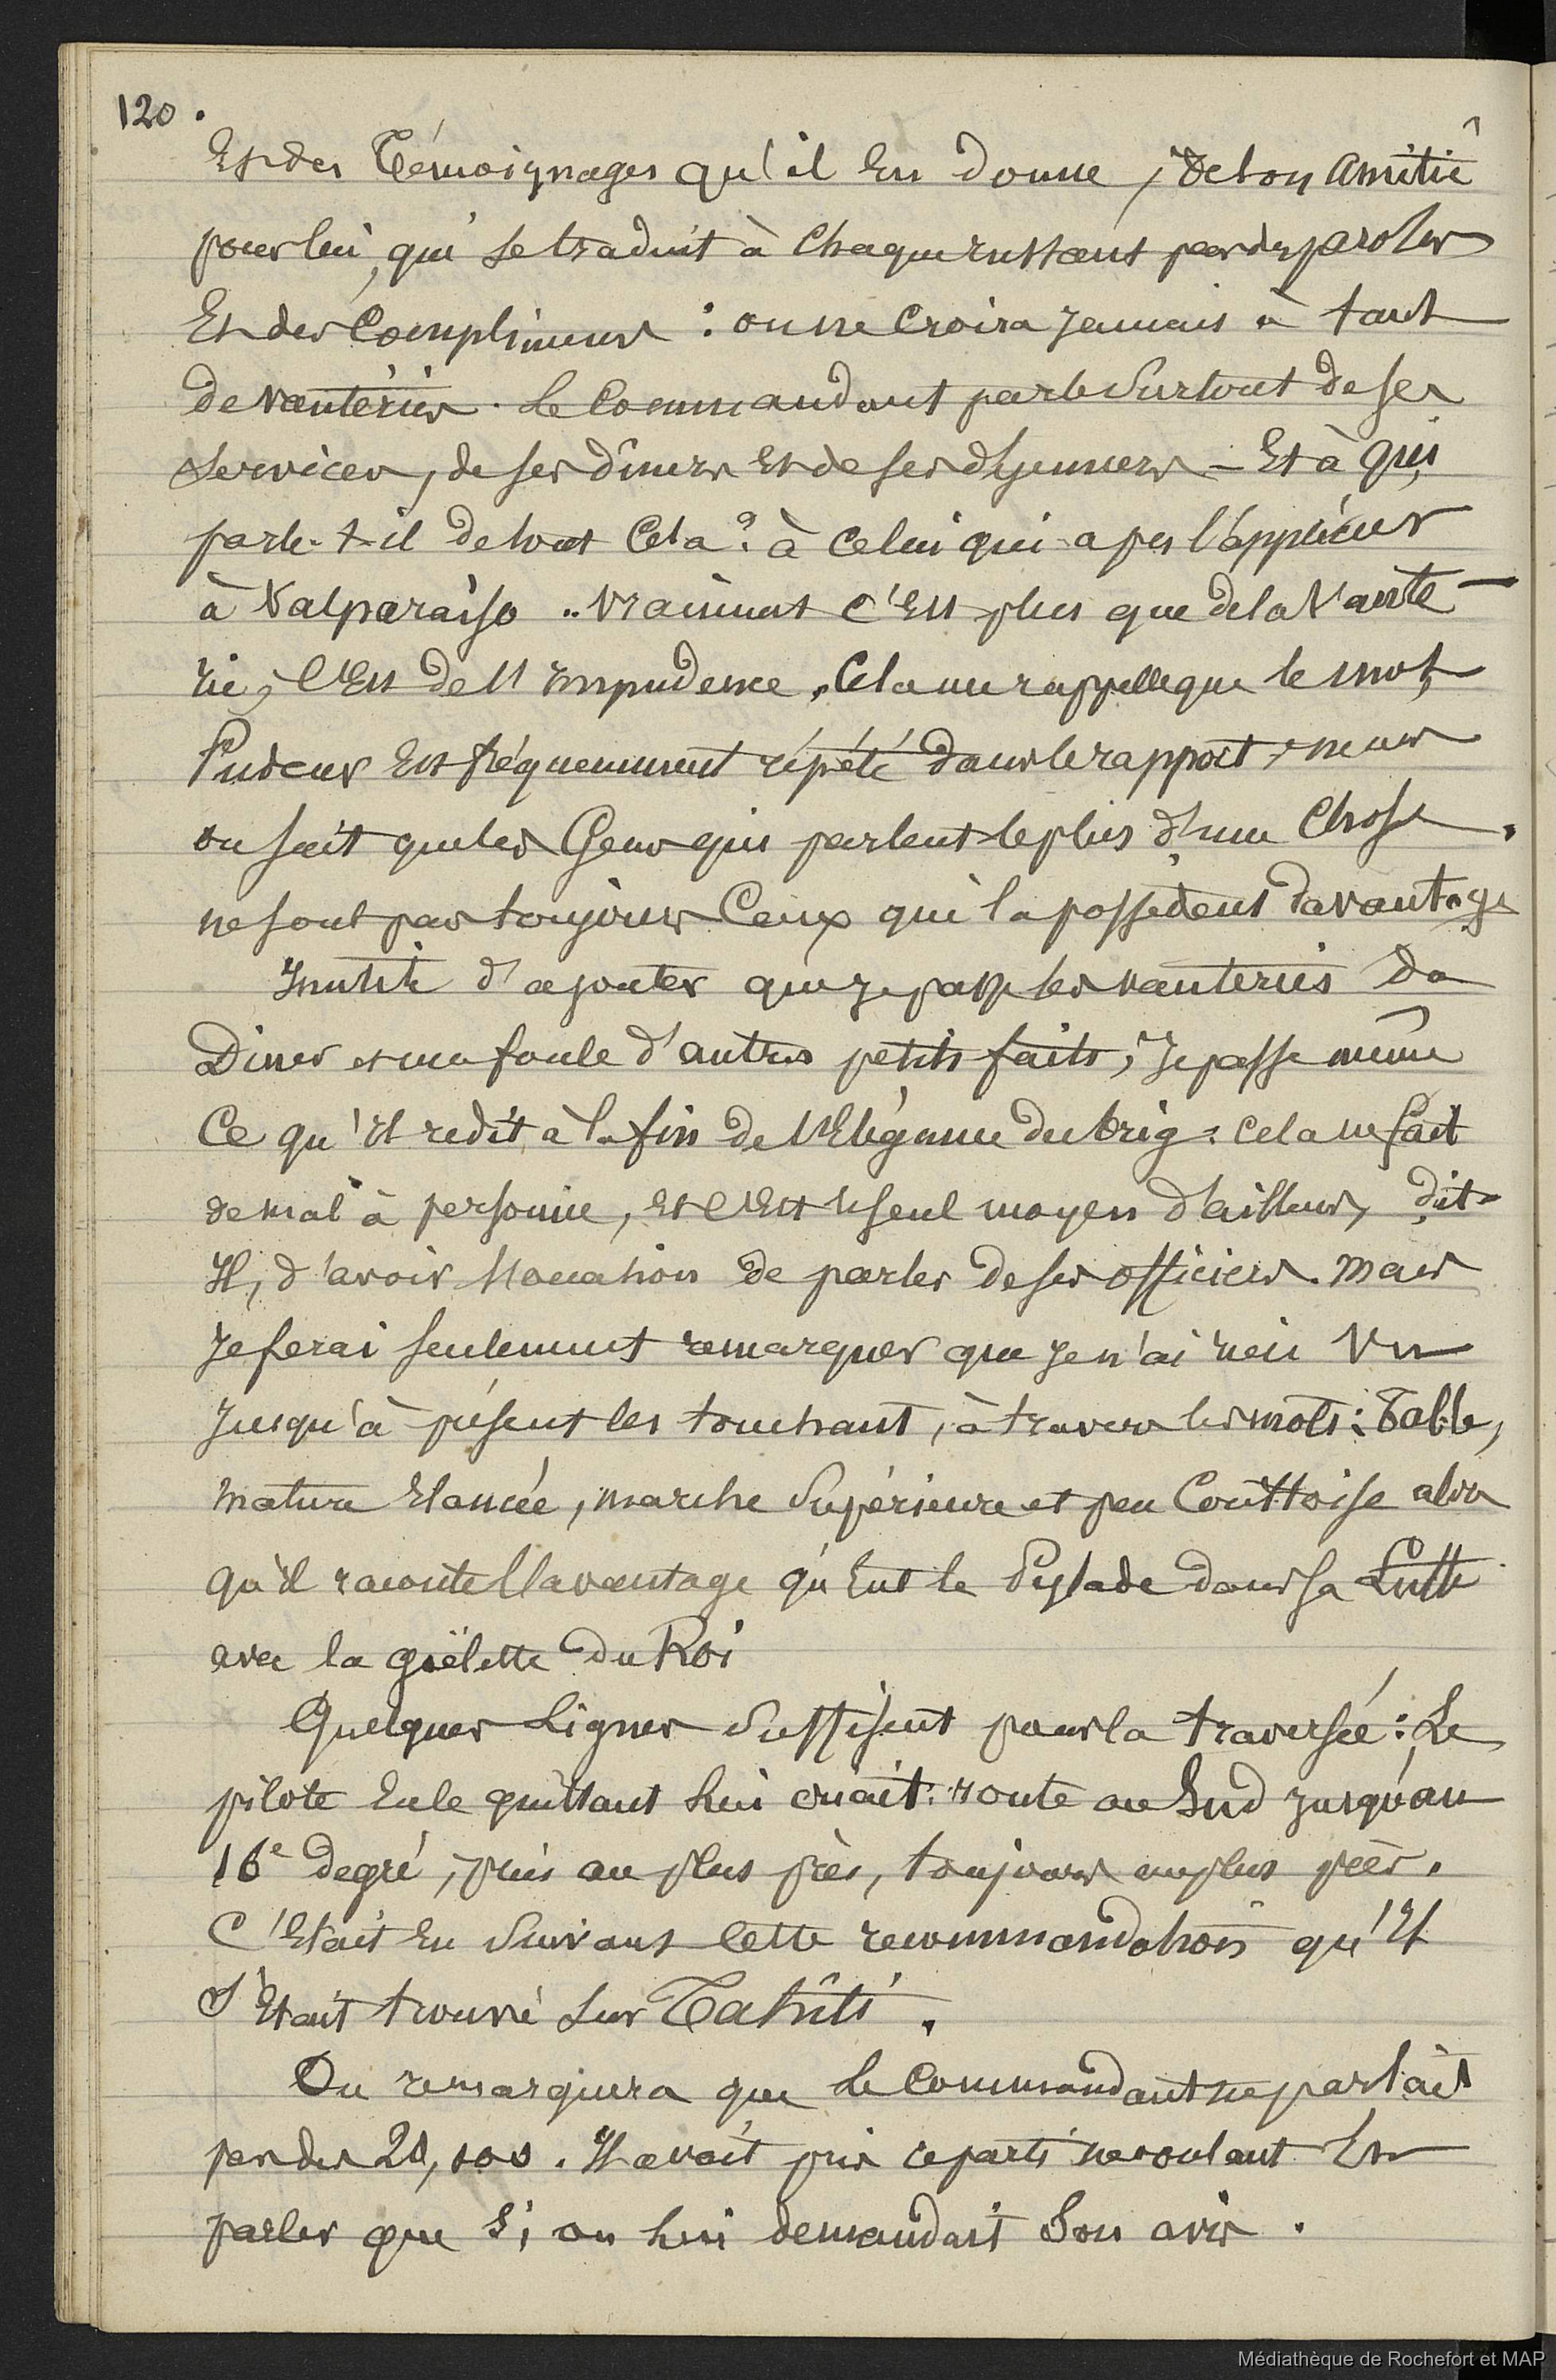 120.
Et des Témoignages qu'il En donne, de son Amitié
pour lui, qui se traduit à Chaque instant par des paroles
Et des Compliments : on ne Croira jamais à tant
de vanteries. Le Commandant parle Surtout de ses
Services, de ses dîners Et de ses déjeuners - Et à qui
parle-t-il de tout Cela ? à Celui qui a pu l'apprécier
à Valparaiso .. Vraiment C'Est plus que de la Vante-
rie, C'Est de l'Impudence. Cela me rappelle que le mot
Pudeur Est fréquemment répété dans le rapport, mais
on sait que les Gens qui parlent le plus d'une Chose
ne sont pas toujours Ceux qui la possèdent davantage
Inutile d'ajouter que je passe les vanteries de
Diner et une foule d'autres petits faits, Je passe même
Ce qu'il redit à la fin de l'Elégance du brig : cela ne fait
de mal à personne, Et C'Est le seul moyen d'ailleurs, dit-
Il, d'avoir l'occasion de parler de ses officiers. Mais
Je ferai seulement remarquer que je n'ai rien Vu
Jusqu'à présent les touchant, à travers les mots : Table,
mature Elancée, marche Supérieure et peu Courtoise alors
qu'il raconte l'avantage qu'Eut le Pylade dans sa Lutte
avec la goëlette du Roi
Quelques Lignes Suffisent pour la traversée : Le
pilote En le quittant lui criait : route au Sud jusqu'au
16e degré, puis au plus près, toujours au plus près.
C'Etait En Suivant Cette recommandation qu'Il
S'Etait trouvé sur Tahïti.
On remarquera que le Commandant ne parlait
pas des 20,000. Il avait pris ce parti ne voulant En
parler que si on lui demandait Son avis.
Médiathèque de Rochefort et MAP